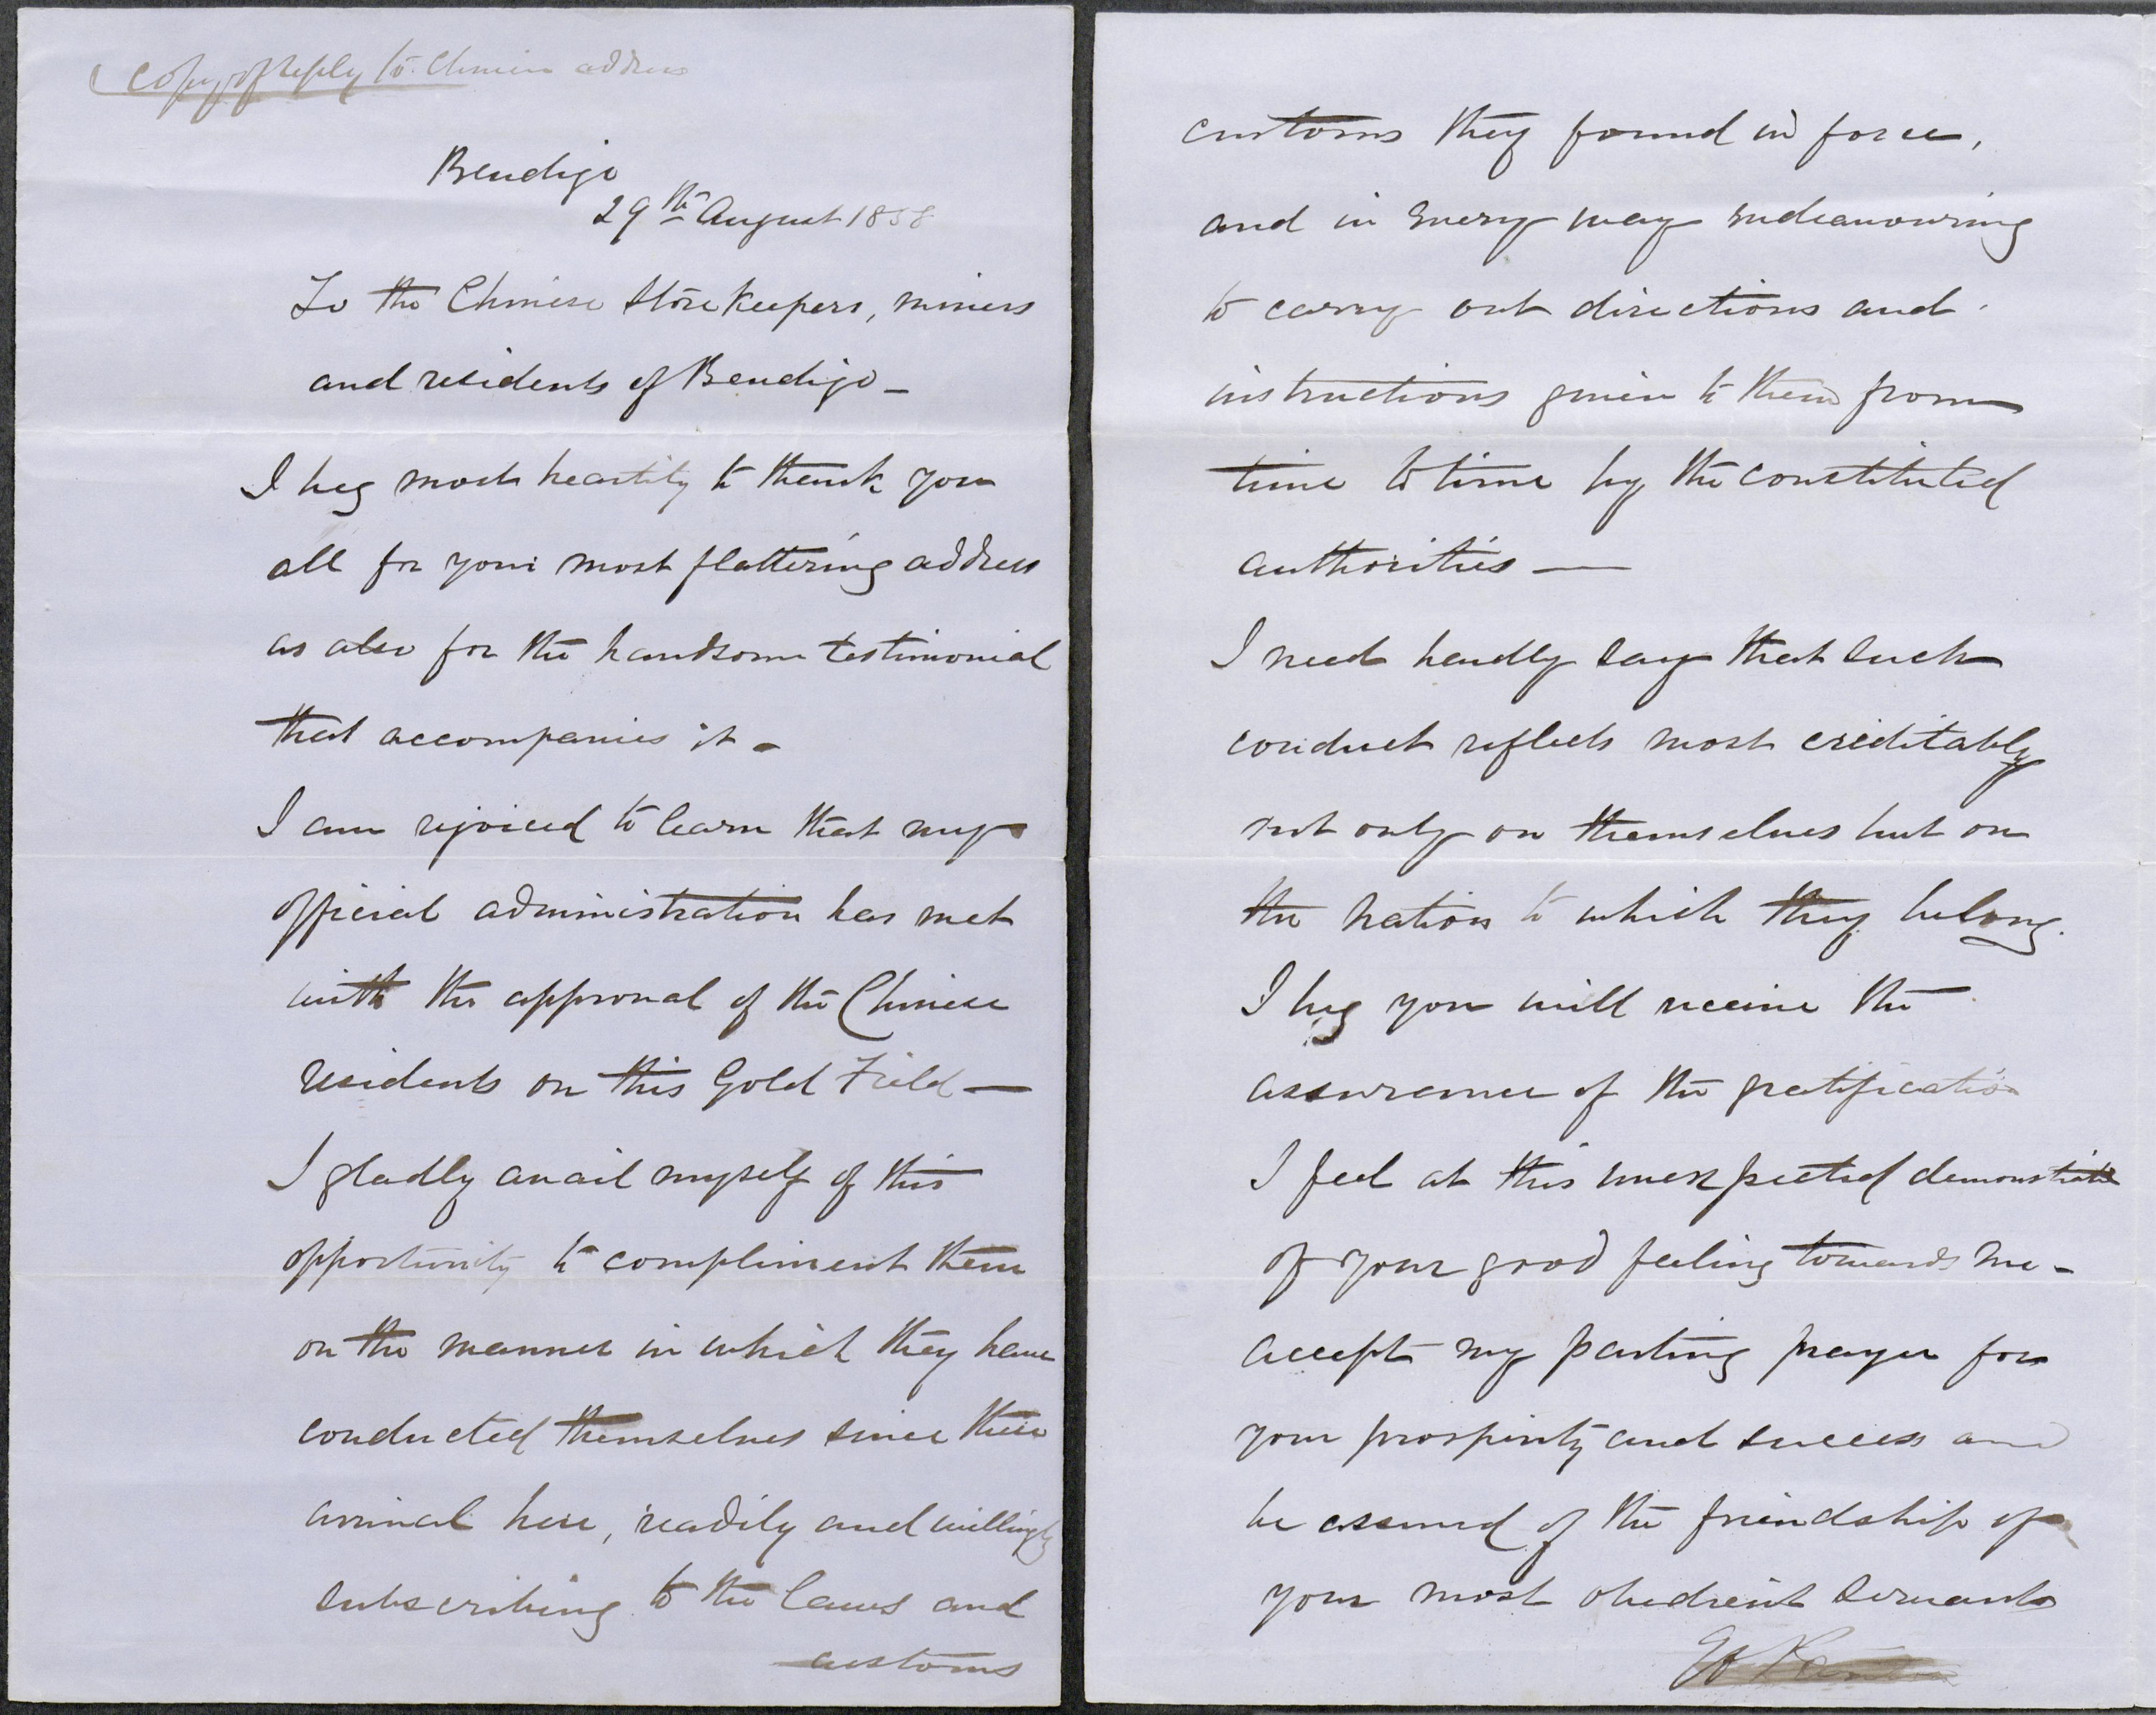 Copy of reply to Chinese address
Bendigo
29th August 1858
To the Chinese Storekeepers, miners
and residents of Bendigo_
I beg most heartily to thank you
all for your most flattering address
as also for the handsome testimonial
that accompanies it -
I am rejoiced to learn that my
official administration has met
with the approval of the Chinese
residents on this Gold Field —
I gladly avail myself of this
opportunity to compliment them
on the manner in which they have
conducted themselves since their
arrival here, readily and willingly
subscribing to the laws and
customs
customs they found in force,
and in every way endeavouring
to carry out directions and
instructions given to them from
time to time by the constituted
authorities —
I need hardly say that such
conduct reflects most creditably
not only on themselves but on
the nation to which they belong.
I beg you will receive the
assurance of the gratification
I feel at this unexpected
of your good feeling towards me -
accept my parting prayer for
your prosperity and success and
be assured of the friendship of
your most obedient servant